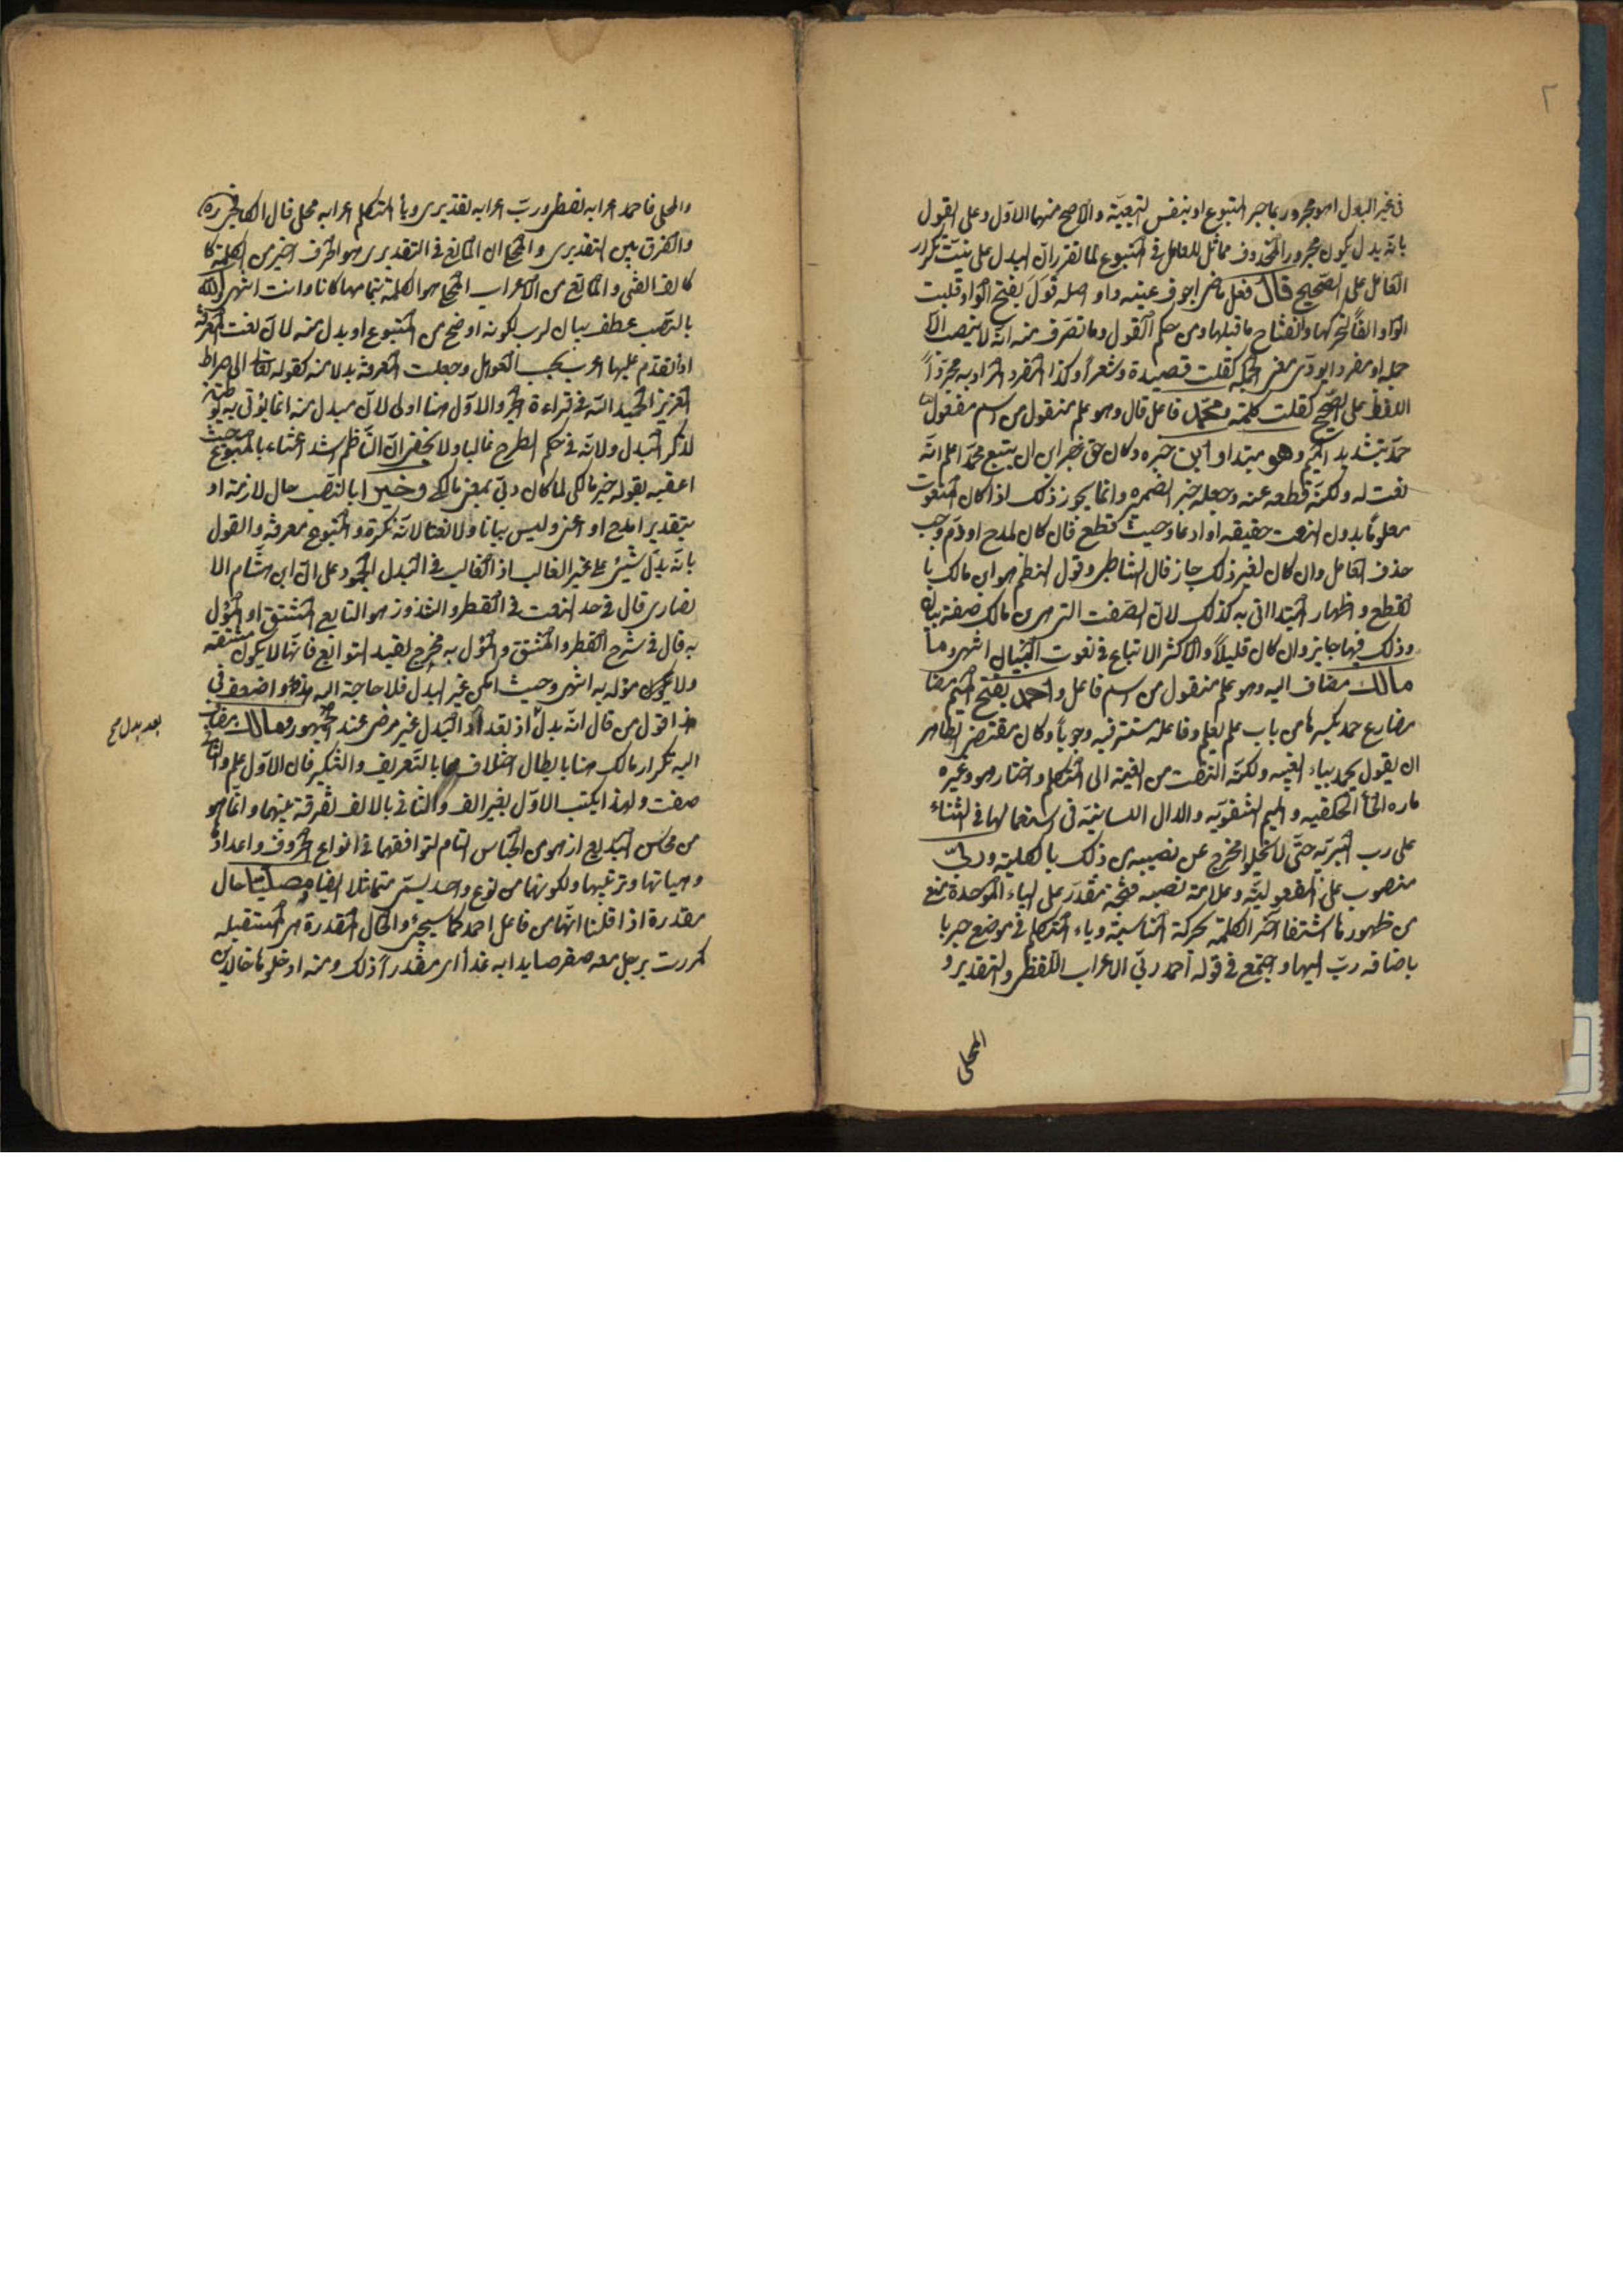 ٢
في غير البدل اهو مجرور بما جر المتبوع او بنفس التبعيّة والاصح منهما الاوّل وعلى القول
بانّه بدل يكون مجرورا لمحذوف مماثل للعامل في المتبوع لما تقرر انّ البدل على نيّت تكرر
العامل على الصّحيح قال فعل ماض اجوف عينه واو اصله قَوَلَ بفتح الواو قلبت
الواو الفًا لتحركها وانفتاح ما قبلها ومن حكم القول وما تصرّف منه انّه لا ينصب الّا
جملة او مفردا يودّى معنى الجملة كقلت قصيدة وشعرا وكذا المفرد المراد به مجرّداً
اللفظ على الصّحيح كقلت كلمة محمّد فاعل قال وهو علم منقول من اسم مفعول
حمّد بتشديد الميم وهو مبتدا وابن خبره وكان حق خبر ابن ان يتبع محمّد اعلم انّه
نعت له ولكنّه قطعه عنه وجعله خبر الضميره وانما يجوز ذلك اذا كان المنعوت
معلوماً بدون النعت حقيقه او ادعا وحيث قطع فان كان لمدح او ذم وجب
حذف العامل وان كان لغير ذلك جاز قال الشاطبى وقول الناظم هو ابن مالك با
لقطع و اظهار المبتدا اتى به كذلك لانّ الصفت التي هي ابن مالك صفة بيان
وذلك فيها جايز وان كان قليلاً والاكثر الاتباع في نعوت البيان انتهى وما
مالك مضاف اليه وهو علم منقول من اسم فاعل واحمد بفتح الميم مضا
مضارع حمد بكسرها من باب علم يعلم وفاعله مستتر فيه وجوباً وكان مقتضى الظاهر
ان يقول يحمد بياء الغيبه ولكنّه التفت من الغيبة الى المتكلم و اختار هو وغيره
ماده الحاء الحلقيه و الميم الشفويّه والدال اللسانيّه في استعمالها في الثناء
على رب البريّه حتّى لا يخلو مخرج عن نصيبه من ذلك بالكليّه وربّى
منصوب على المفعوليّه وعلامة نصبه فتحة مقدّر على الباء الموحدة منع
من ظهورها اشتغال آخر الكلمة بحركة المناسبة وياء المتكلم في موضع جر با
باضافه ربّ اليها واجتمع في قوله احمد ربّى الاعراب اللفظى والتقديرى و
المحلى
والمحلى فاحمد اعرابه لفظى وربّ اعرابه تقديرى ويا المتكلم اعرابه محلى قال الكافيجى ره
والفرق بين التقديرى و المحلى ان المانع في التقديرى هو الحرف الاخير من الكلمة كا
كالف الفتى والمانع من الاعراب المحلى هو الكلمة بتمامها كانا وانت انتهى واللّه
بالنصب عطف بيان لرب لكونه اوضح من المتبوع او بدل منه لانّ نعت المعرفة
اذا تقدّم عليها اعرب بحسب العوامل وجعلت المعرفة بدلا منه كقوله تعالى الى صراط
العزيز الحميد اللّه في قراءة الجر والاوّل هنا اولى لانّ مبدل منه انما يؤتى به توطئة
لذكر البدل ولانّه في حكم الطرح غالبا ولا يخفى انّ النّاظم اشد اعتناء بالمتبوع حيث
اعقبه بقوله خير مالكى لما كان ربّى بمعنى مالكى وخير ابالنصب حال لازمة او
بتقدير امدح او اعنى وليس بيانا ولا نعتا لانّه نكرة و المتبوع معرفة والقول
بانّه بدل شيئ على غير الغالب اذ الغالب في البدل الجمود على انّ ابن هشام الا
نصارى قال في حد النعت في القطر والشذوذ هو التابع المشتق او المؤول
به قال في شرح القطر والمشتق و المؤول به مخرج لبقيه التوابع فانّها لا يكون مشتقه
ولا يكون مؤله به انتهى وحيث امكن غير البدل فلا حاجة اليه واضعف في
هذا قول من قال انّه بدل اذ تعدد البدل غير مرضى عند الجمهور ومالك مضاف
اليه تكرار مالك هنا بابطال اختلافهما بالتّعريف والتنكير فان الاوّل علم والثانى
صفت ولهذا يكتب الاوّل بغير الف والثاني بالالف تفرقة بينهما وانما هو
من محاسن البديع اذ هو من الجناس التام لتوافقهما في انواع الحروف واعدادها
وهياتها وترتيبها ولكونهما من نوع واحد يسمّى متماثلا ايضا مصليّا حال
مقدرة اذا قلنا انّها من فاعل احمد كما سيجئ والحال المقدرة هي المستقبله
كمررت برجل معه صقر صايدا به غداً اى مقدراً ذلك ومنه ادخلوها خالدين
بعد بدل صح